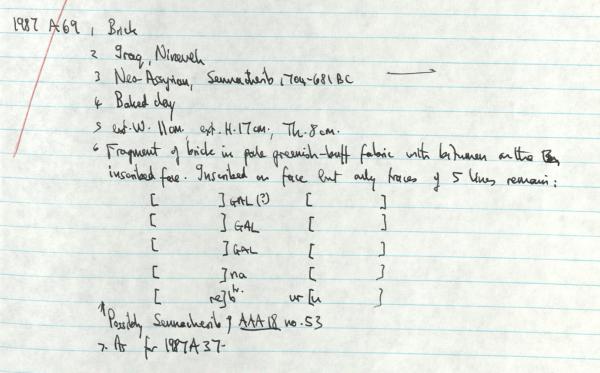 1987 A69, 1 Brick
2 Iraq, Nineveh
3 Neo-Assyrian, Sennacherib, 704-681 BC
4 Baked clay
5 ext. W. 11cm, ext. H. 17cm, Th. 8cm.
6 Fragment of brick in pale greenish-buff fabric with bitumen on the
inscribed face. Inscribed on face but only traces of 5 lines remain:
[ ] GAL (?) [ ]
[ ] GAL [ ]
[ ] GAL [ ]
[ ] na [ ]
[ re] ur [u ]
Possibly Sennacherib of AAA 18 no. 53
7. As for 1987A37-